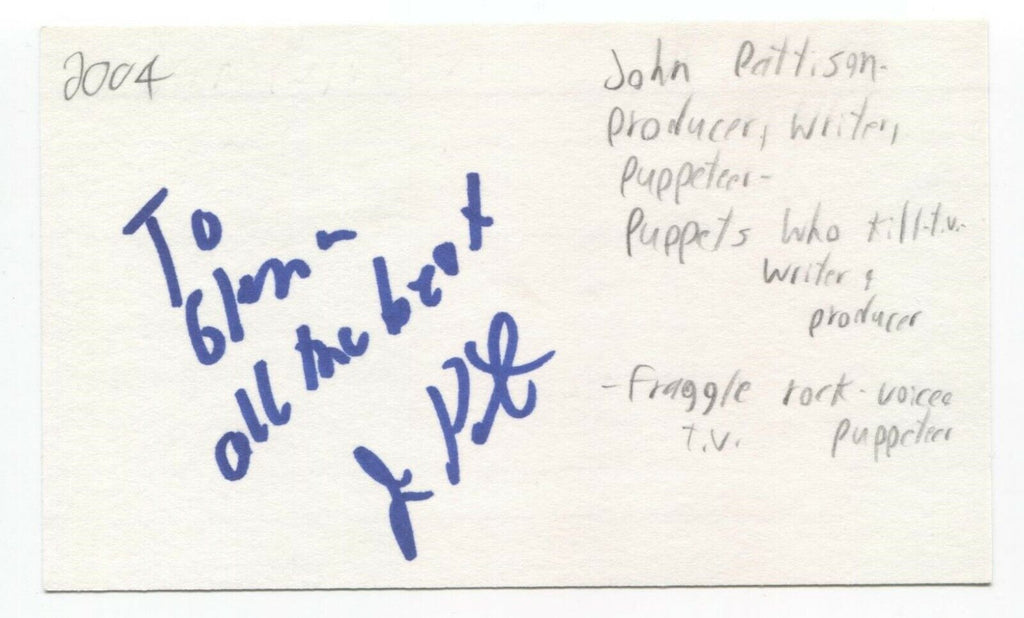 2004
John Pattison-
producer, writer,
puppeteer-
Puppets Who Kill-t.v.-
writer &
producer
-Fraggle rock-voice
t.v. puppeteer
To
Glenn-
all the best